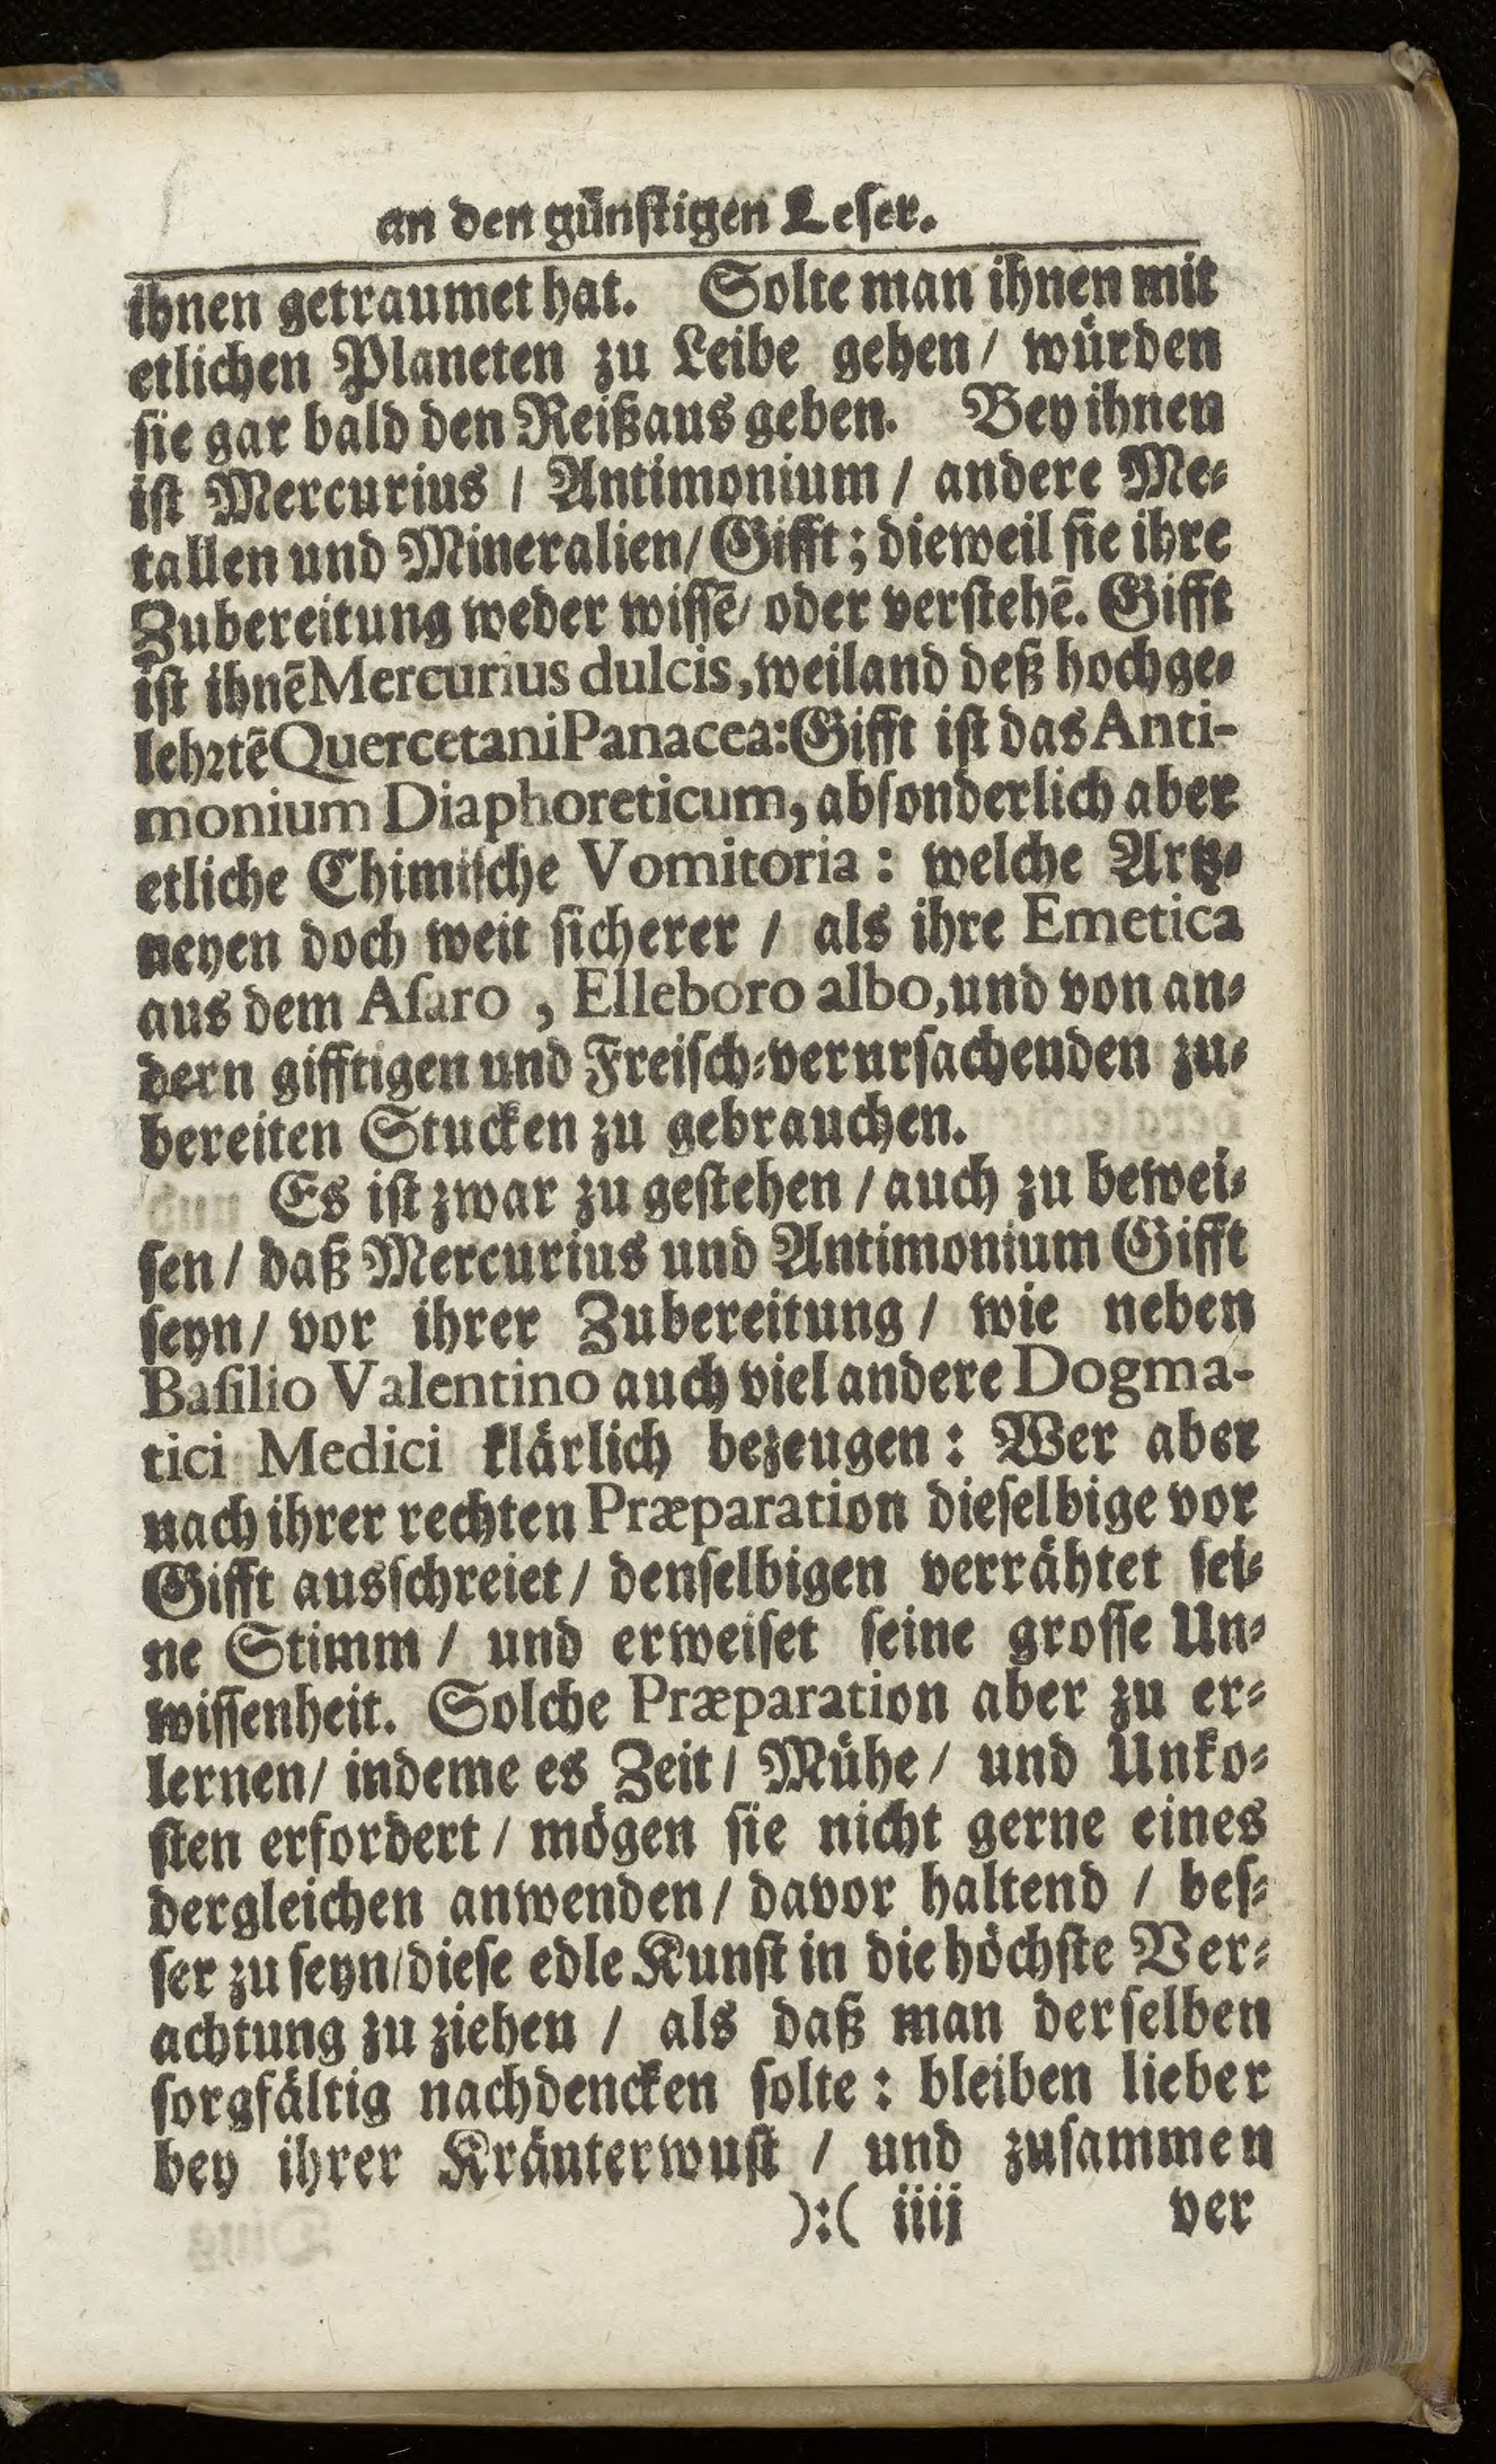 an den günſtigen Leſer.
ihnen getraumet hat. Solte man ihnen mit
etlichen Planeten zu Leibe gehen / würden
ſie gar bald den Reißaus geben. Bey ihnen
iſt Mercurius / Antimonium / andere Me⸗
tallen und Mineralien / Gifft; dieweil ſie ihre
Zubereitung weder wiſſē / oder verſtehē. Gifft
iſt ihnē Mercurius dulcis, weiland deß hochge⸗
lehꝛtē Quercetani Panacea: Gifft iſt das Anti-
monium Diaphoreticum, abſonderlich aber
etliche Chimiſche Vomitoria: welche Artz⸗
neyen doch weit ſicherer / als ihre Emetica
aus dem Aſaro, Elleboro albo, und von an⸗
dern gifftigen und Freiſch⸗verurſachenden zu⸗
bereiten Stucken zu gebrauchen.
Es iſt zwar zu geſtehen / auch zu bewei⸗
ſen / daß Mercurius und Antimonium Gifft
ſeyn / vor ihrer Zubereitung / wie neben
Baſilio Valentino auch viel andere Dogma-
tici Medici klärlich bezeugen: Wer aber
nach ihrer rechten Præparation dieſelbige vor
Gifft ausſchreiet / denſelbigen verrähtet ſei⸗
ne Stimm / und erweiſet ſeine groſſe Un⸗
wiſſenheit. Solche Præparation aber zu er⸗
lernen / indeme es Zeit / Mühe / und Unko⸗
ſten erfordert / mögen ſie nicht gerne eines
dergleichen anwenden / davor haltend / beſ⸗
ſer zu ſeyn / dieſe edle Kunſt in die höchſte Ver⸗
achtung zu ziehen / als daß man derſelben
ſorgfältig nachdencken ſolte: bleiben lieber
bey ihrer Kräuterwuſt / und zuſammen
):( iiij ver